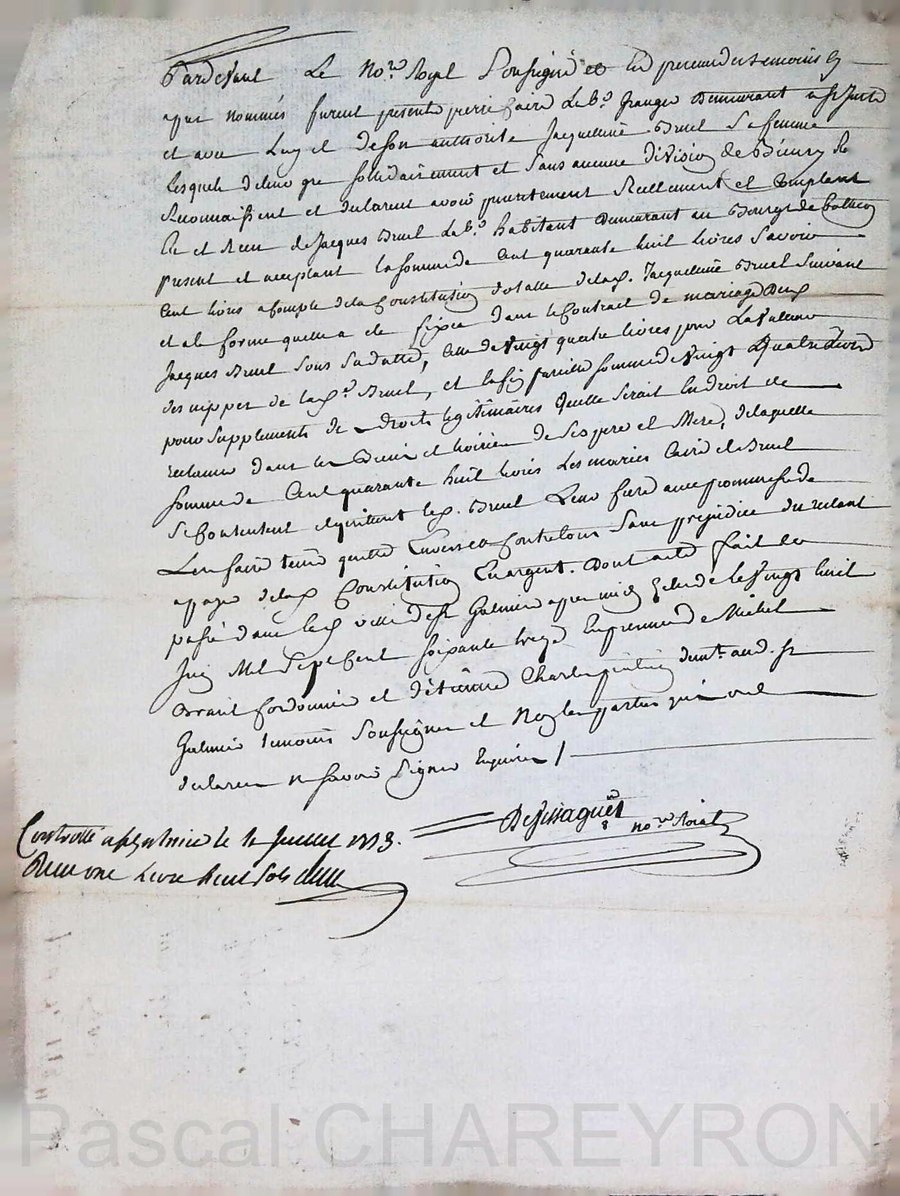 Pardevant Le No.re Royal Soussigné et En presence des temoins Cy
apres nommés furent presents pierre faire Lab.r Granger Demeurant a St Juste
et avec Luy et de son authorité Jacquelline Bruel Sa femme
Lesquels de leur gré sollidairement et Sans aucune division de Biens Re
Reconnaissent et declarent avoir purettement Reellement et Comptant
Eu et Receu de Jacques Bruel Lab.r habitant Demeurant au Bourg de
present et acceptant la somme de Cent quarante huit livres Savoir
Cent livres a Compte de la Constitution dotalle de lad. Jacquelline Bruel Suivant
et a la forme quelle a eté fixée dans le Contrat de mariage
Jacques Bruel Sous Sa datte, Celle de Vingt quatre livres pour La Valleur
des nippes de lad.e Bruel, et Enfin pareille Somme de Vingt Quatre Livres
pour Supplements de droits legitimaires quelle serait En droit de
reclamer dans les Biens et hoiries de Ses pere et Mere, de laquelle
Somme de Cent quarante huit livres Les mariés faire et Bruel
Se Contentent et quittent led. Bruel Leur frere avec promesse de
L'en faire tenir quitte Envers et Contre tous Sans prejudice du restant
a payer de lad. Constitution En argent. Dont acte fait et
passé dans lad. ville de St Galmier apres midy Le Vingt huit
Juin Mil Sept Cent Soixante treze En presence de Michel
Brunit Cordonnier et d'étienne Charle demt. aud. St
Galmier temoins Soussignés et Non les parties qui ont
declarees ne Savoir Signer Enquises /
Desissagues
no.re Roial
Controllé a St Galmier le 11 Juillet 1773.
Receu une Livre huit Sols
Pascal CHAREYRON